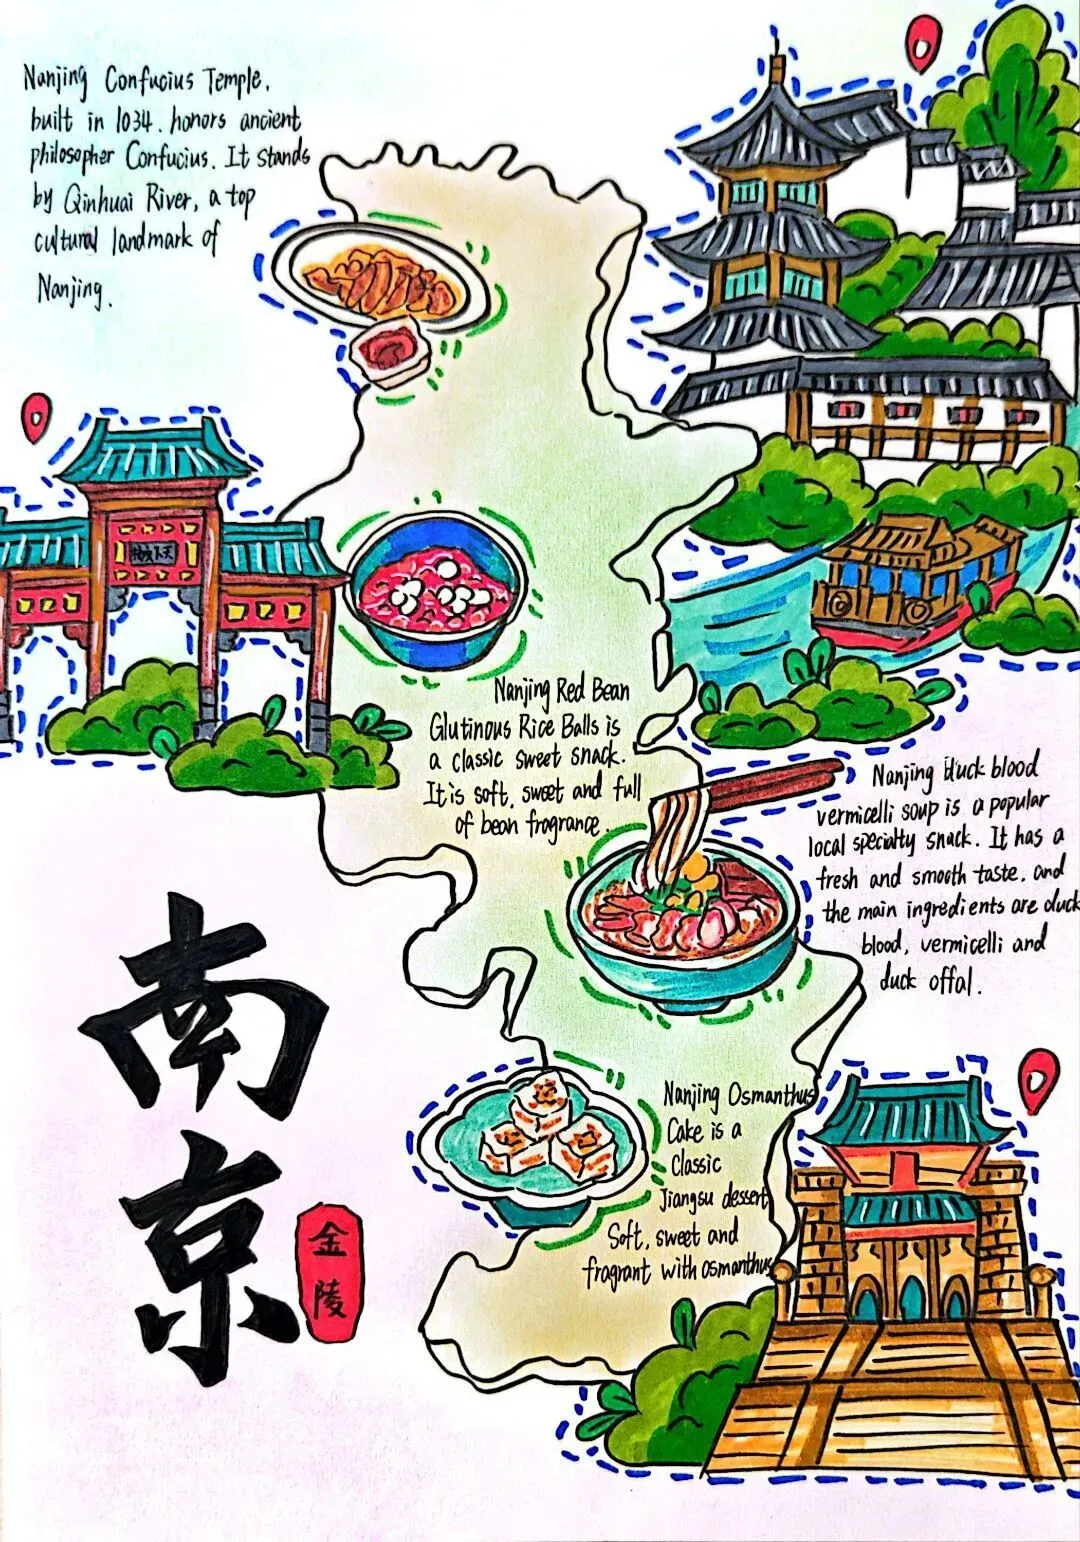 Nanjing Confucius Temple,
built in 1034, honors ancient
philosopher Confucius. It stands
by Qinhuai River, a top
cultural landmark of
Nanjing.
天下文枢
Nanjing Red Bean
Glutinous Rice Balls is
a classic sweet snack.
It is soft, sweet and full
of bean fragrance.
Nanjing duck blood
vermicelli soup is a popular
local specialty snack. It has a
fresh and smooth taste, and
the main ingredients are duck
blood, vermicelli and
duck offal.
南
京
金
陵
Nanjing Osmanthus
Cake is a
Classic
Jiangsu dessert
Soft, sweet and
fragrant with osmanthus